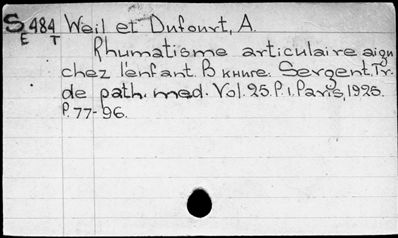 S484 Weil et Dufourt, A.
E T
Rhumatisme articulaire aigu
chez l'enfant. В книге: Sergent. Tr.
de path. med. Vol. 25. P. 1. Paris, 1925.
P. 77-96.